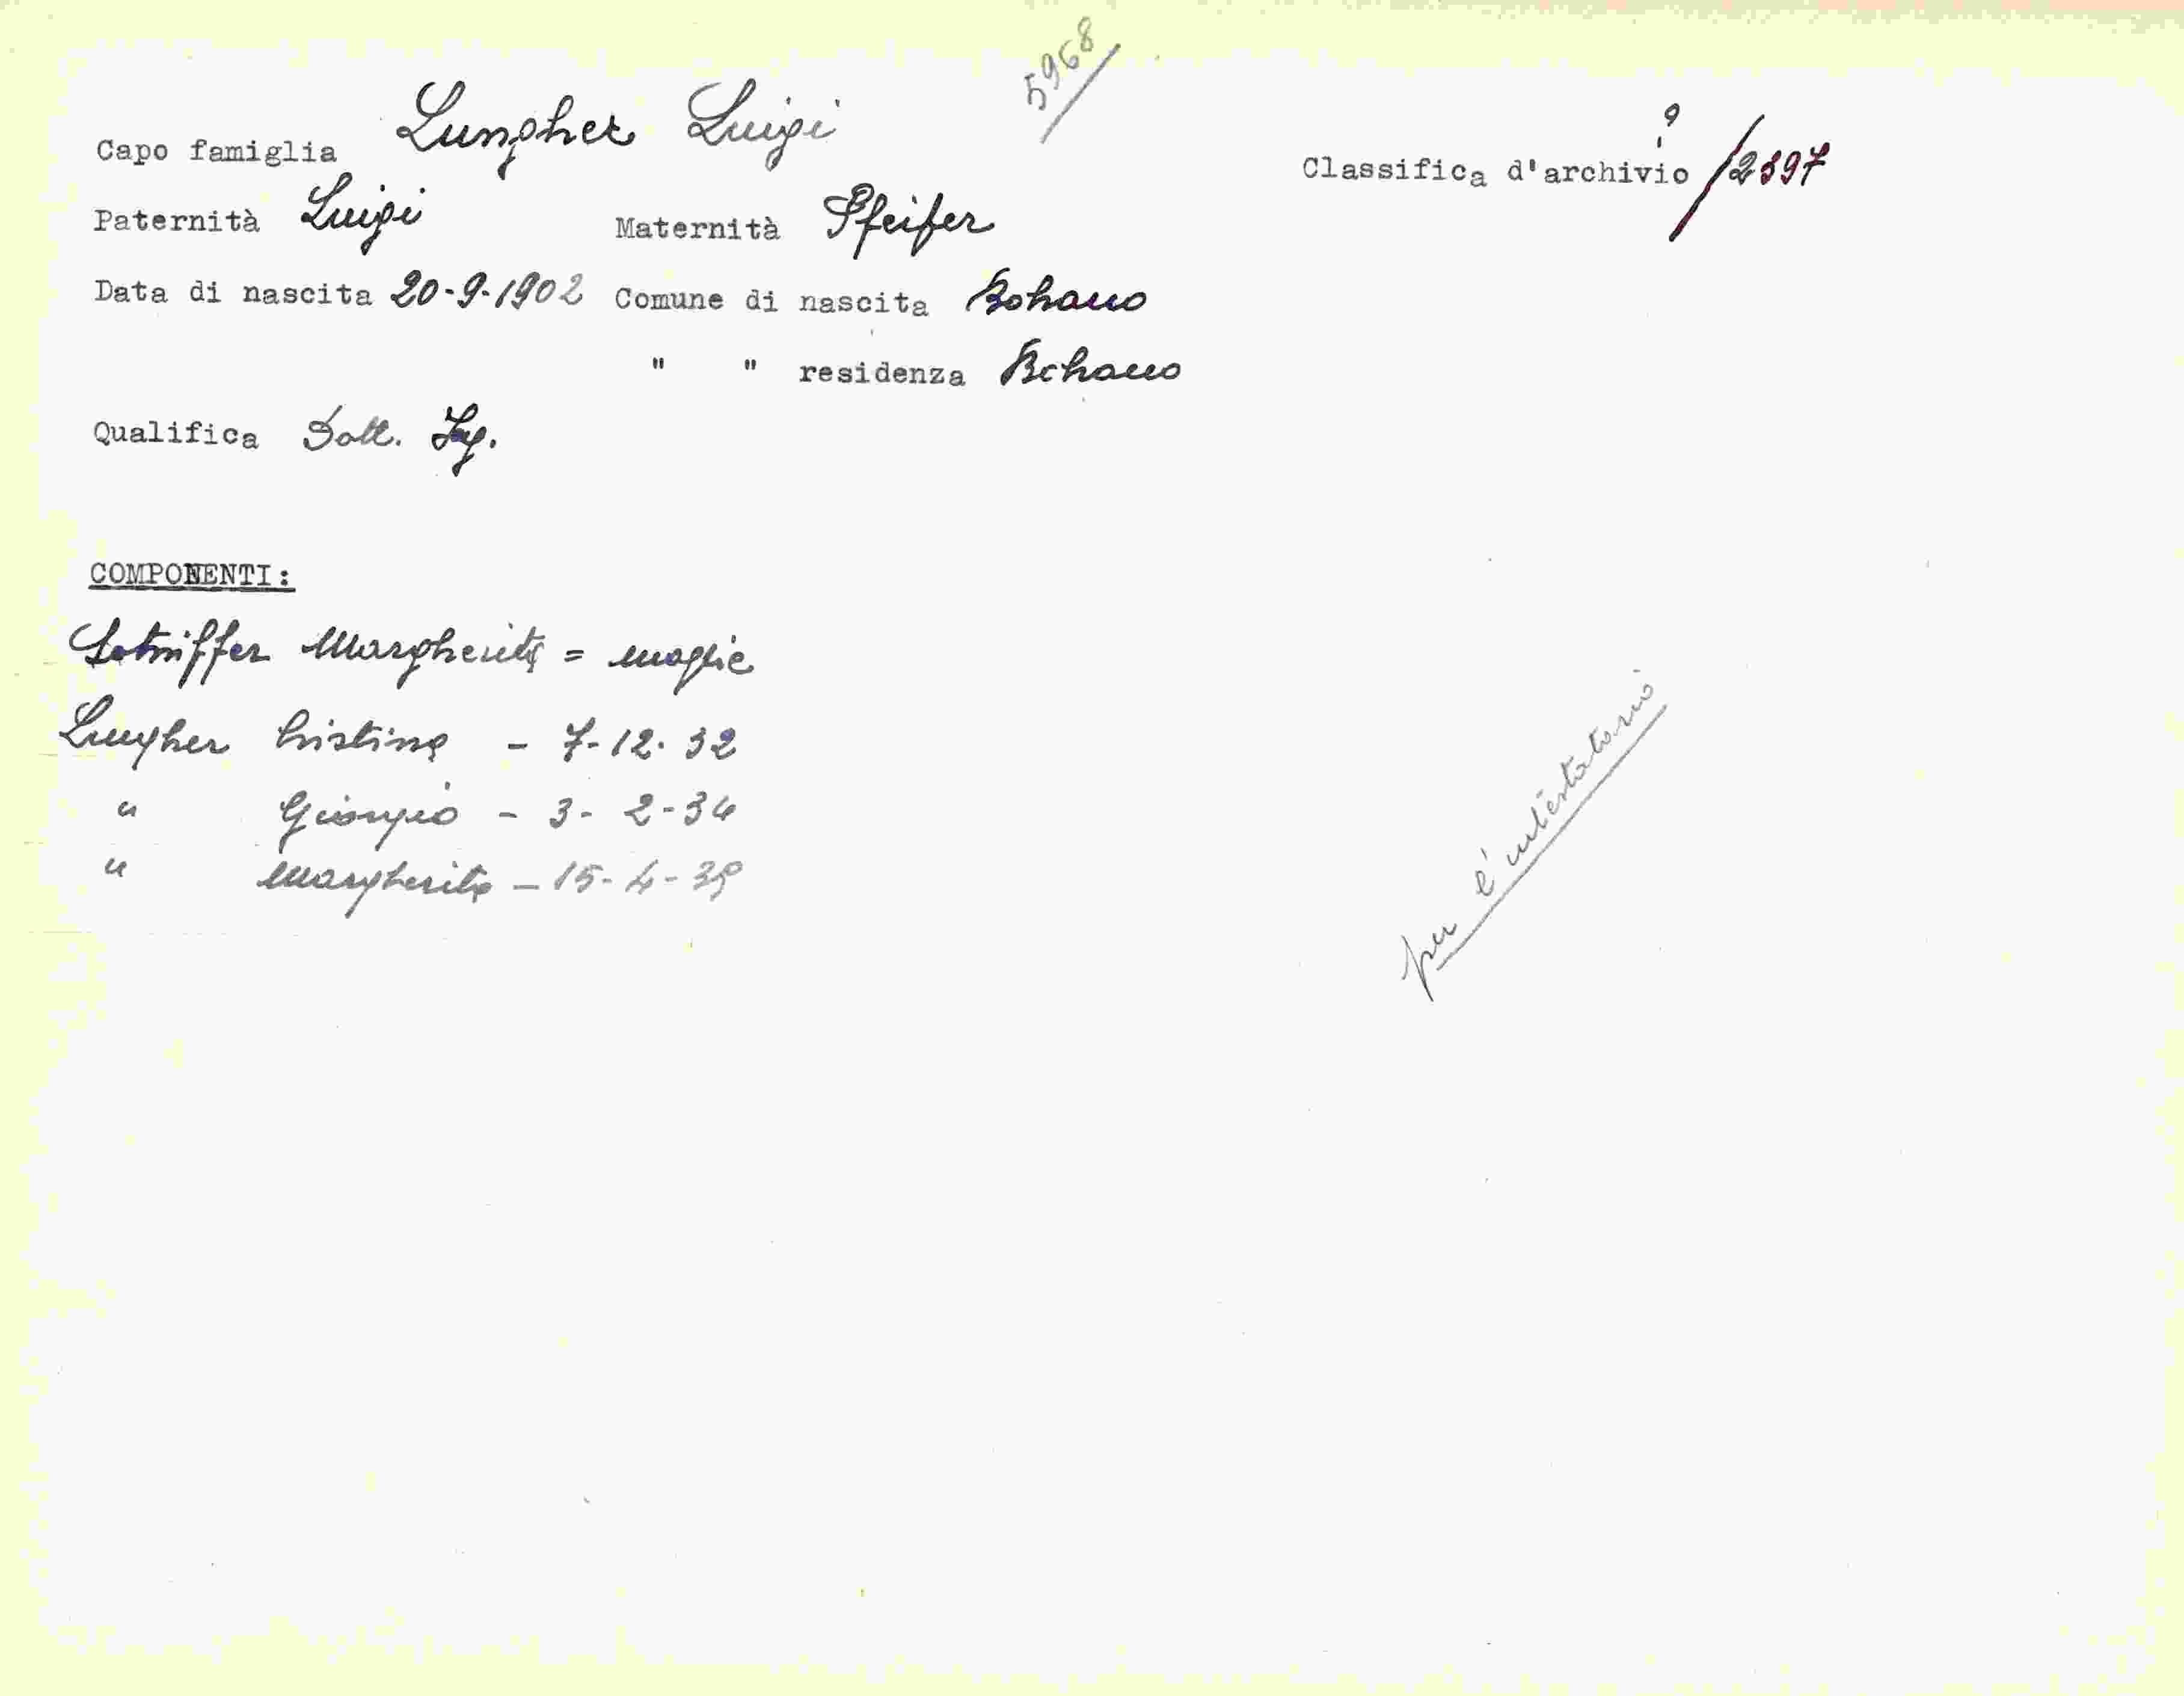 5968
Capo famiglia Lungher Luigi
Classifica d'archivio ? /2397
Paternità Luigi Maternità Pfeifer
Data di nascita 20-9-1902 Comune di nascita Bolzano
" " residenza Bolzano
Qualifica Dott. Ing.
COMPONENTI:
Margherita = moglie
Lungher Cristina - 7-12-32
" Giorgio - 3-2-34
" Margherita - 15-4-39
per l'intestatario